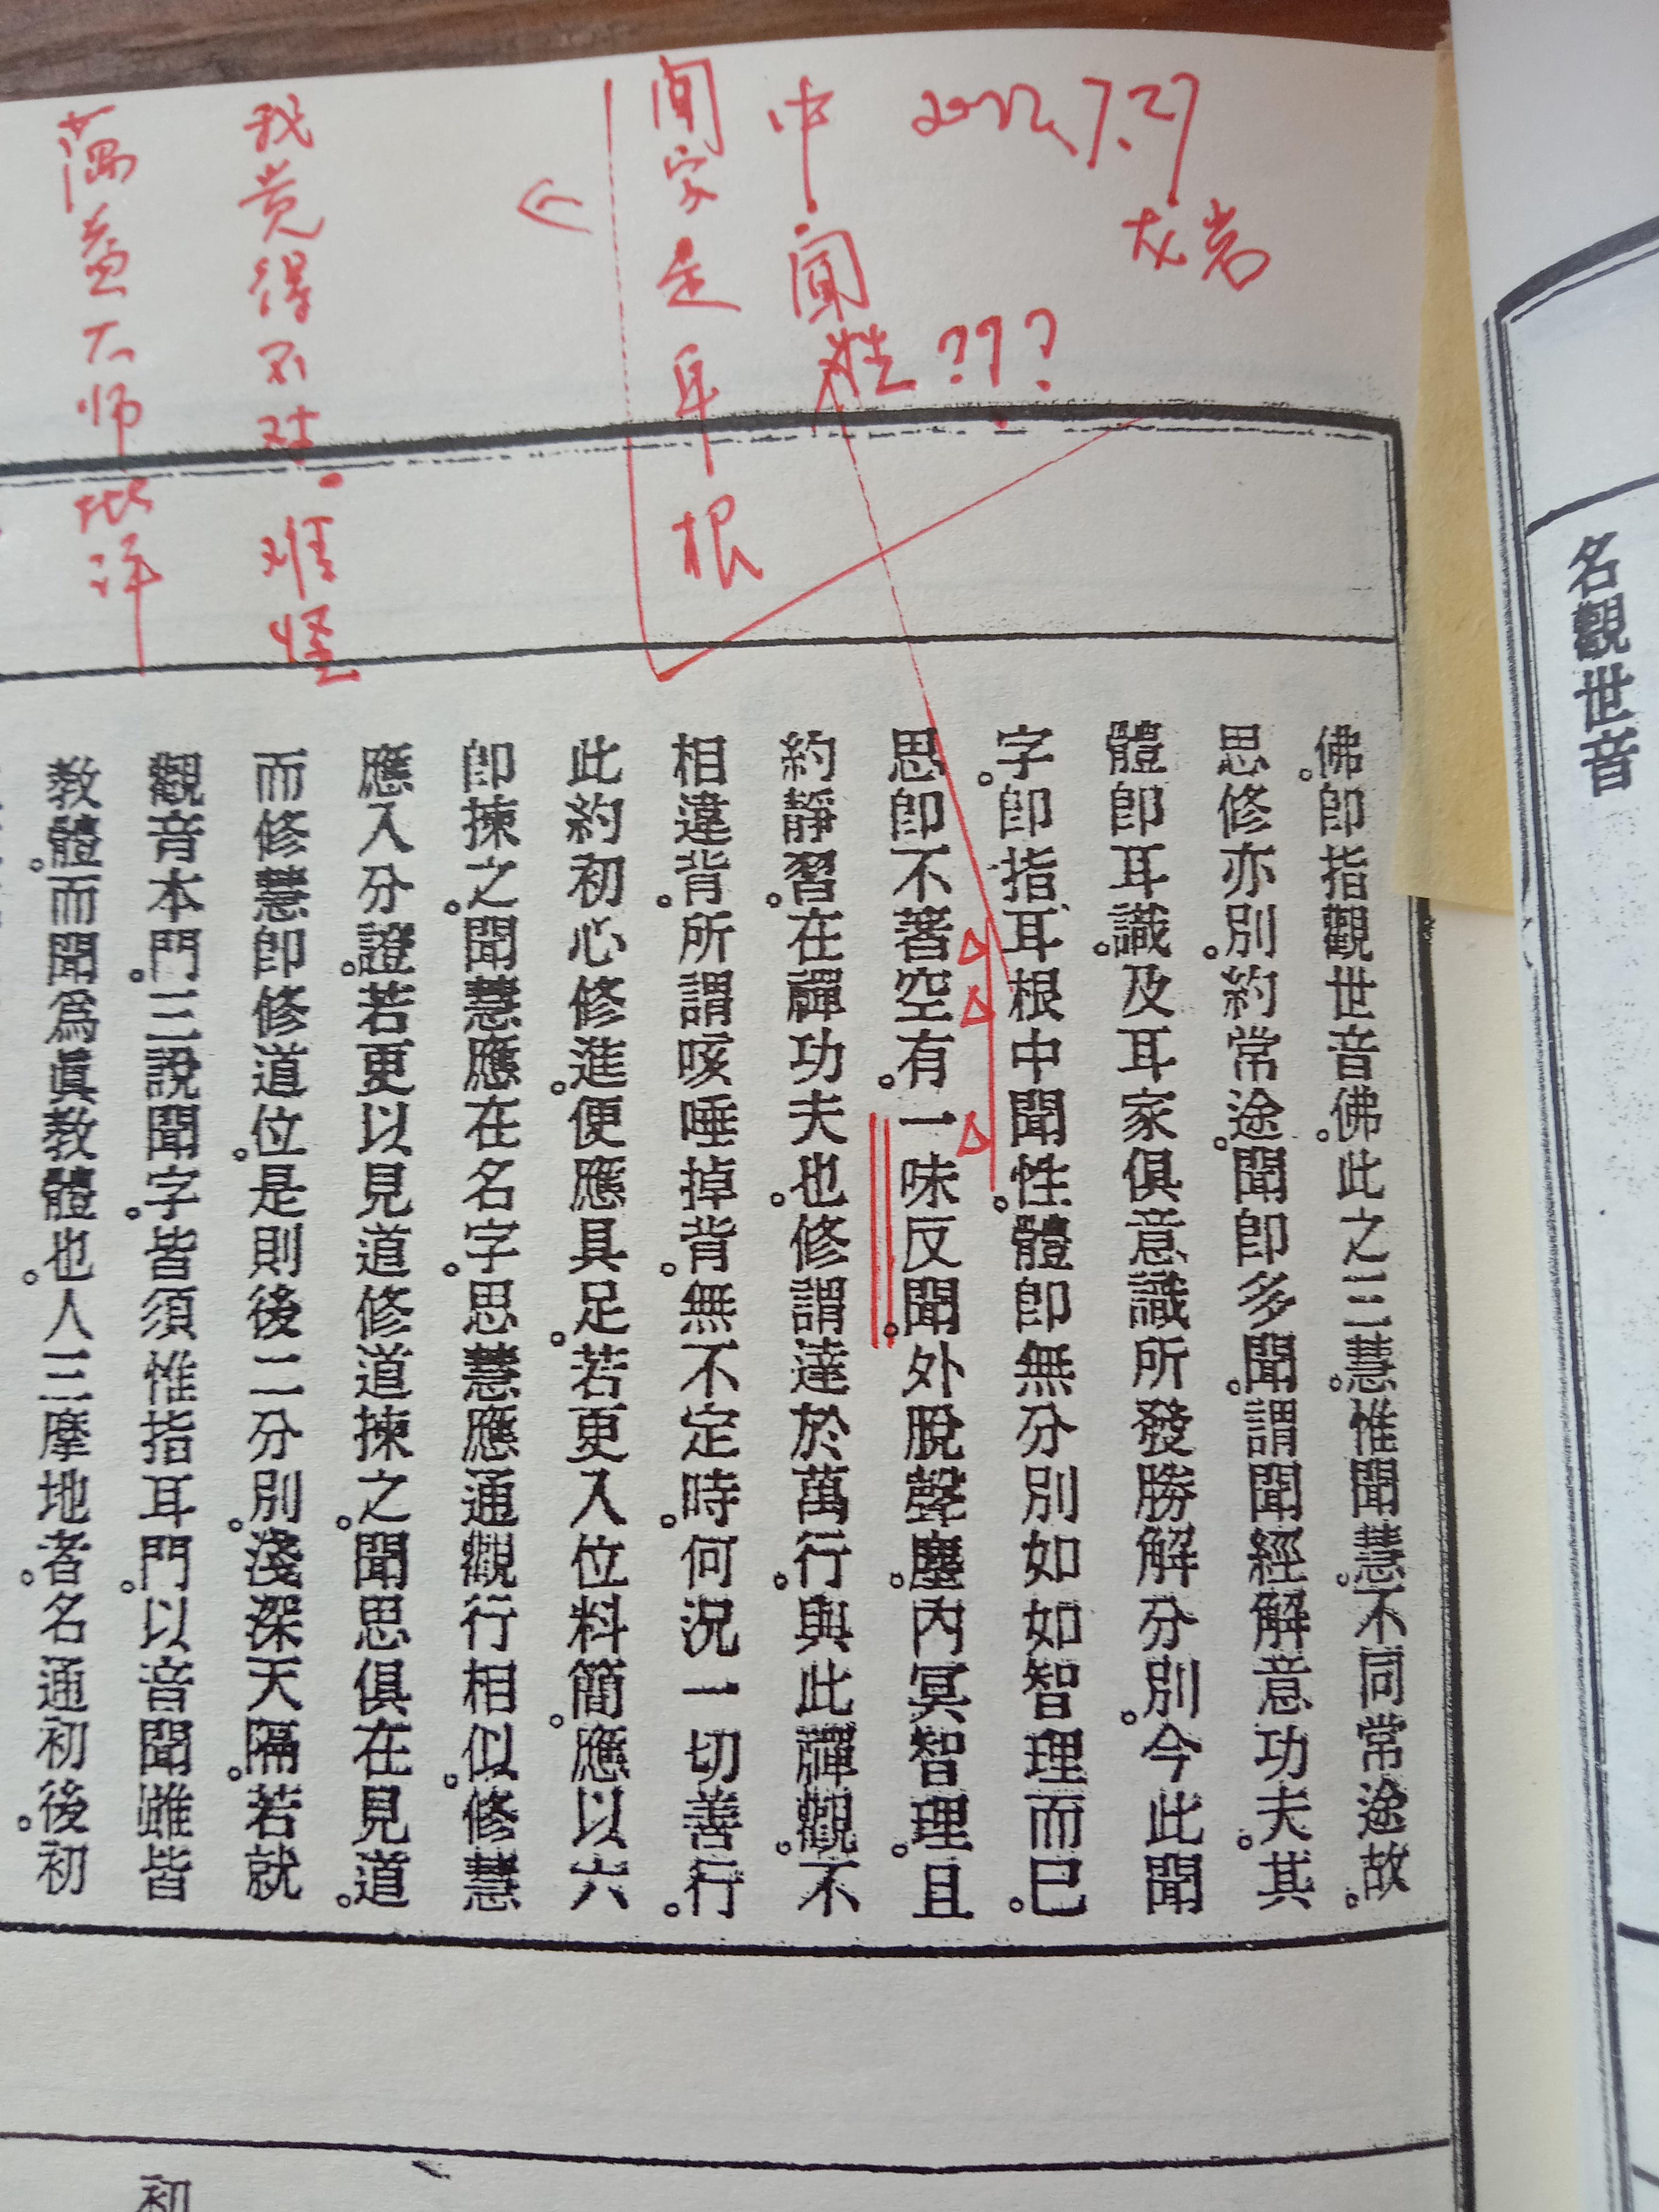 名觀世音
2022.7.27
中聞性???
聞家是耳根
我覚得不対。难怪
蕅益大师批评
佛。即指觀世音佛。此之三慧。惟聞慧。不同常途故。
思修亦別。約常途。聞即多聞。謂聞經解意功夫。其
體即耳識。及耳家俱意識所發勝解分別。今此聞
字。即指耳根中聞性。體即無分別如如智理而已。
思即不著空有。一味反聞。外脫聲塵。內冥智理。且
約靜習。在禪功夫也。修謂達於萬行。與此禪觀。不
相違背。所謂咳唾掉背。無不定時。何況一切善行。
此約初心修進。便應具足。若更入位料簡。應以六
即揀之。聞慧應在名字。思慧應通觀行相似。修慧
應入分證。若更以見道修道揀之。聞思俱在見道。
而修慧即修道位。是則後二分別。淺深天隔。若就
觀音本門。三說聞字。皆須惟指耳門。以音聞雖皆
教體。而聞爲眞教體也。人三摩地者。名通初後。初
初